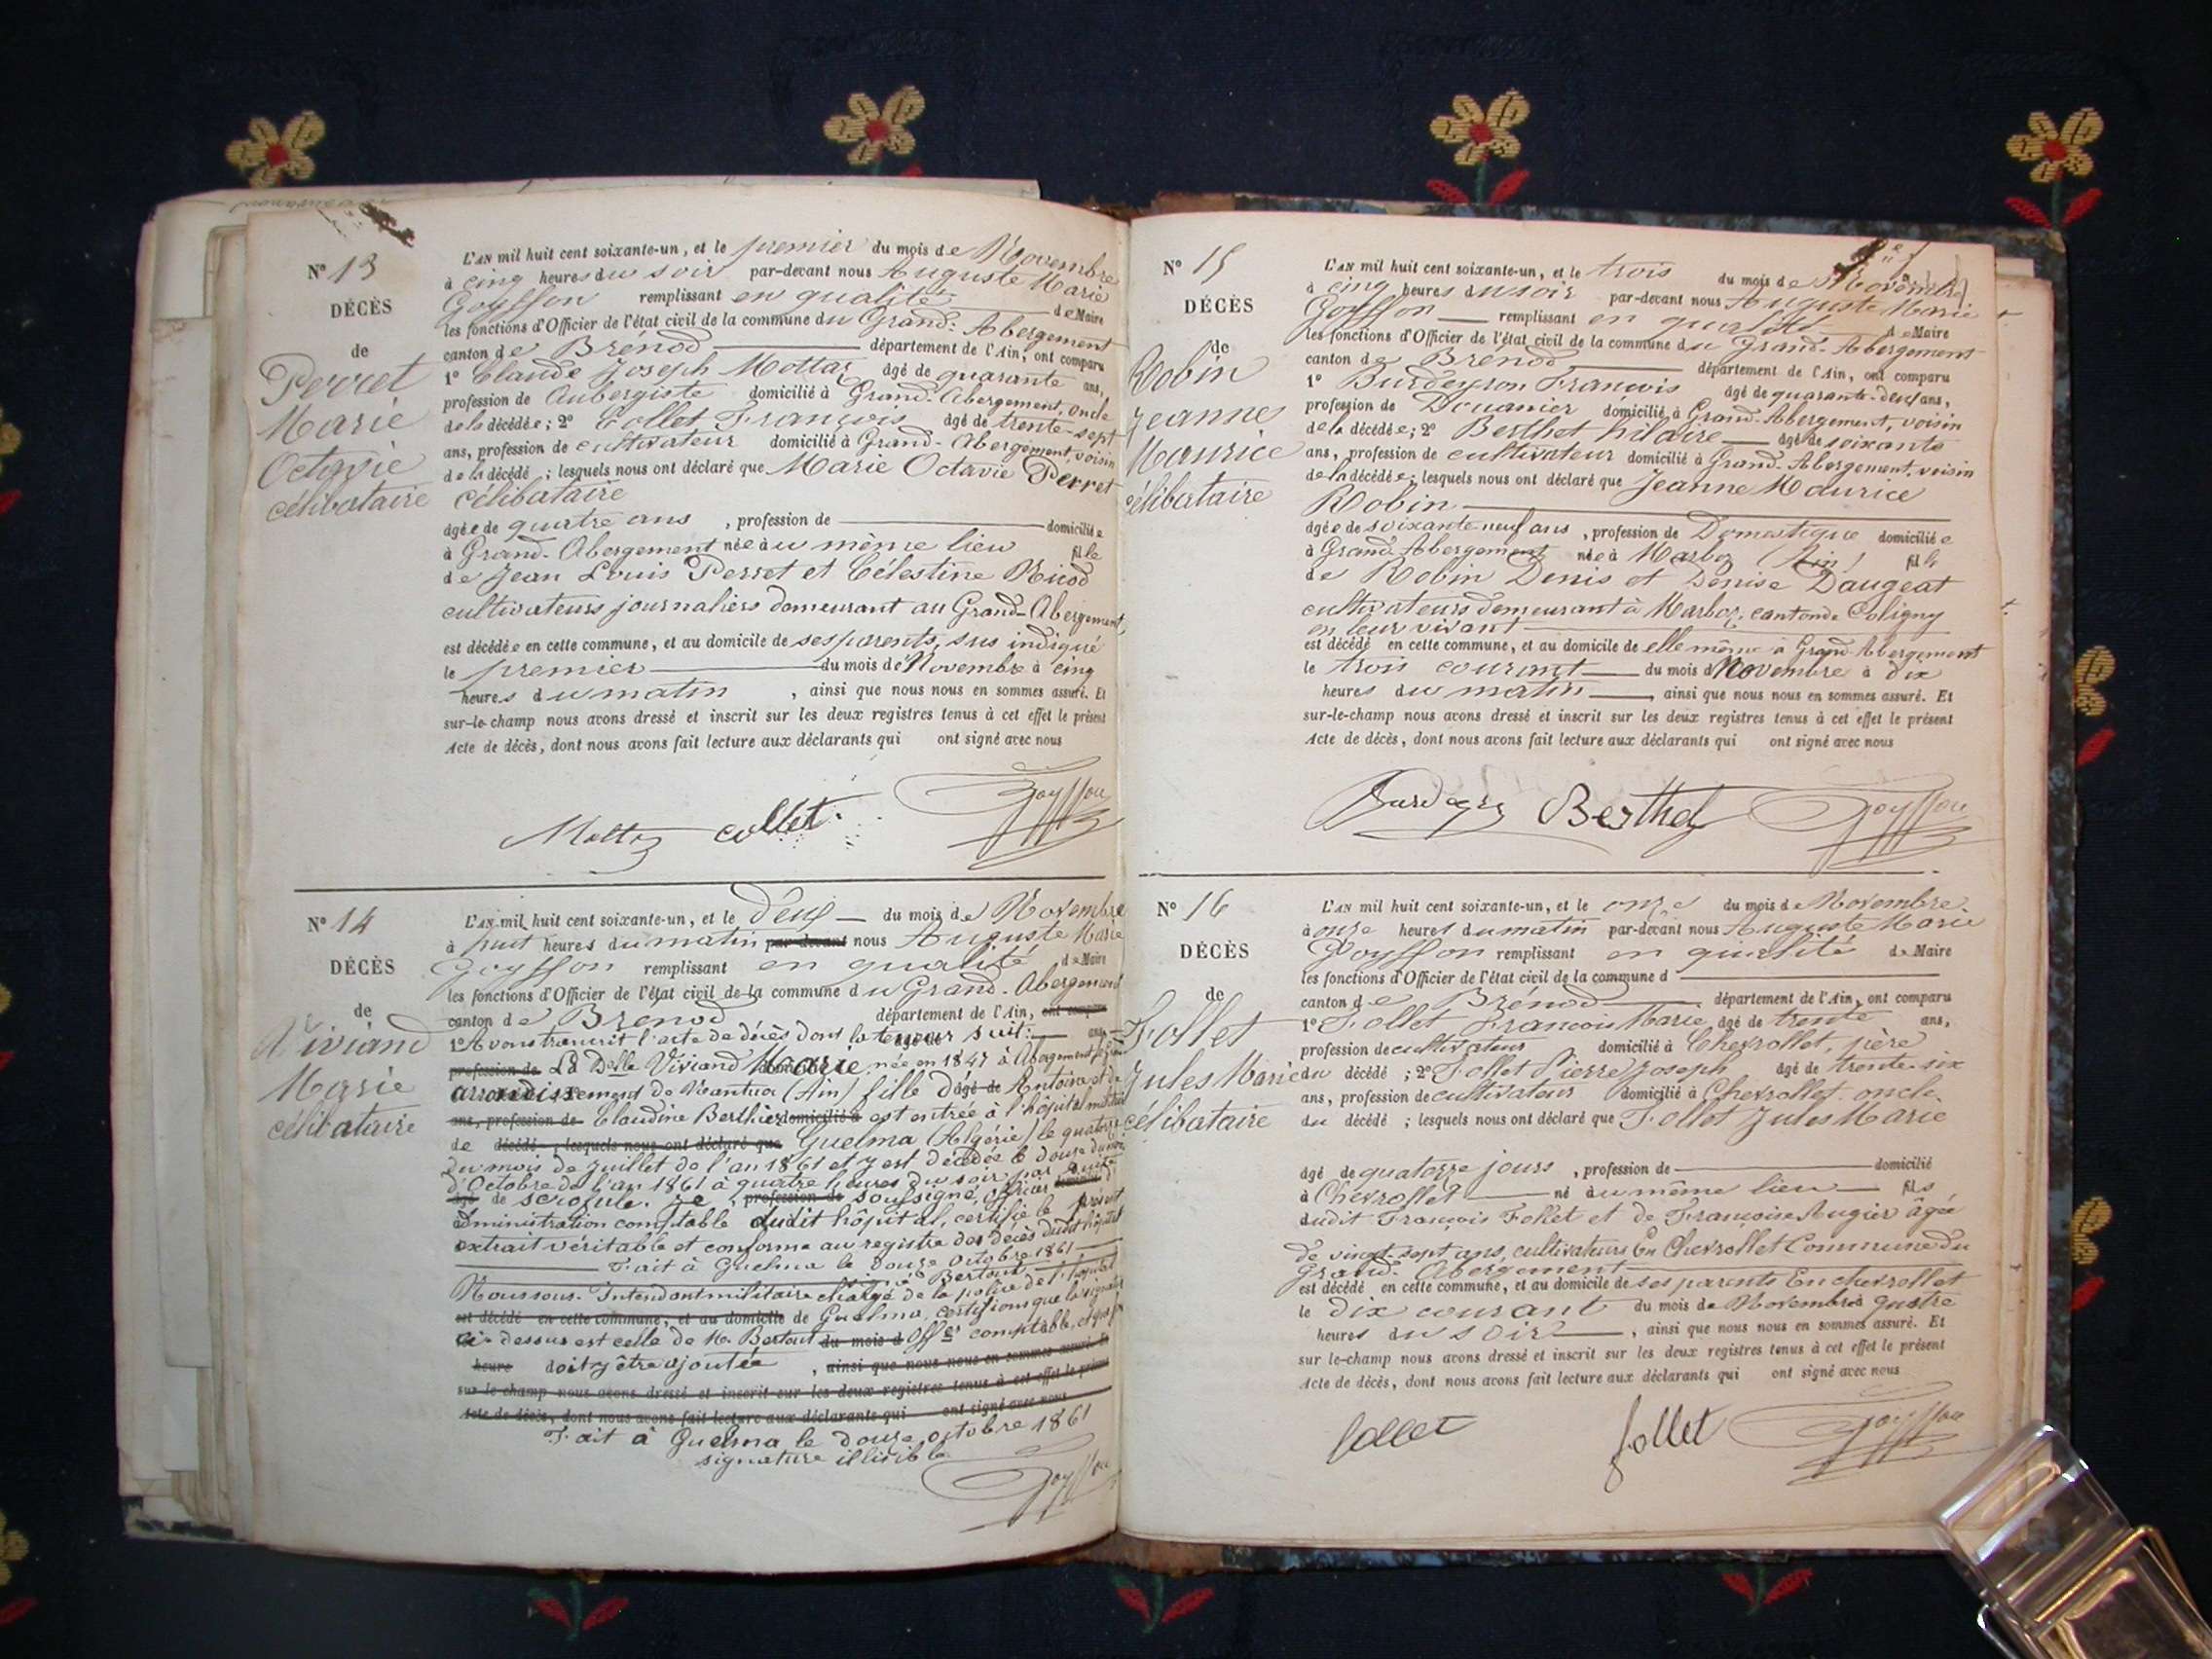 N° 13
DÉCÈS
de
Perret
Marie
Octavie
célibataire
L'AN mil huit cent soixante-un, et le premier du mois de Novembre
à cinq heures du soir par-devant nous Auguste Marie
Goyffon remplissant en qualité de Maire
les fonctions d'Officier de l'état civil de la commune du Grand-Abergement
canton de Brenod département de l'Ain, ont comparu
1° Claude Joseph Mottaz âgé de quarante ans,
profession de Aubergiste domicilié à Grand-Abergement, oncle
de la décédée; 2° Collet François âgé de trente-sept
ans, profession de cultivateur domicilié à Grand-Abergement voisin
de la décédé ; lesquels nous ont déclaré que Marie Octavie Perret
célibataire
âgée de quatre ans , profession de domiciliée
à Grand-Abergement née au même lieu fille
de Jean Louis Perret et Célestine Nicod
cultivateurs journaliers demeurant au Grand-Abergement,
est décédée en cette commune, et au domicile de ses parents, sus indiqué
le premier du mois de Novembre à cinq
heures du matin , ainsi que nous nous en sommes assuré. Et
sur-le-champ nous avons dressé et inscrit sur les deux registres tenus à cet effet le présent
Acte de décès, dont nous avons fait lecture aux déclarants qui ont signé avec nous
Mottaz collet Goyffon
N° 14
DÉCÈS
de
Viviand
Marie
célibataire
L'AN mil huit cent soixante-un, et le deux du mois de Novembre
à huit heures du matin par-devant nous Auguste Marie
Goyffon remplissant en qualité de Maire
les fonctions d'Officier de l'état civil de la commune du Grand-Abergement
canton de Brenod département de l'Ain, ont comparu
1° Avons transcrit l'acte de décès dont la teneur suit: ans
profession de La Delle Viviand Marie, née en 1847 à Abergement
arrondissement de Nantua (Ain) fille d'âgé de Antoine et de
ans, profession de Claudine Berthier domicilié à est entrée à l'hôpital militaire
de décédé ; lesquels nous ont déclaré que Guelma (Algérie) le quatorze
du mois de Juillet de l'an 1861 et y est décédée le douze du mois
d'Octobre de l'an 1861 à quatre heures du soir par suite
âgé de scrofule. Je , profession de soussigné, officier domicilié d'
administration comptable dudit hôpital, certifie le présent
extrait véritable et conforme au registre des décès dudit hôpital
Fait à Guelma le douze octobre 1861,
signé Bertout
Nous sous-Intendant militaire chargé de la police de l'hôpital
est décédé en cette commune, et au domicile de Guelma, certifions que la signature
ci-dessus est celle de M. Bertout du mois d Offer comptable, et que foi
heure doit y être ajoutée , ainsi que nous nous en sommes assuré. Et
sur-le-champ nous avons dressé et inscrit sur les deux registres tenus à cet effet le présent
Acte de décès, dont nous avons fait lecture aux déclarants qui ont signé avec nous
Fait à Guelma le douze octobre 1861
signature illisible
Goyffon
N° 15
DÉCÈS
de
Robin
Jeanne
Maurice
célibataire
L'AN mil huit cent soixante-un, et le trois du mois de Novembre
à cinq heures du soir par-devant nous Auguste Marie
Goyffon remplissant en qualité de Maire
les fonctions d'Officier de l'état civil de la commune du Grand-Abergement
canton de Brenod département de l'Ain, ont comparu
1° Burdeyron François âgé de quarante-deux ans,
profession de Douanier domicilié à Grand-Abergement, voisin
de la décédée; 2° Berthet hilaire âgé de soixante
ans, profession de cultivateur domicilié à Grand-Abergement, voisin
de la décédée; lesquels nous ont déclaré que Jeanne Maurice
Robin
âgée de soixante-neuf ans , profession de Domestique domiciliée
à Grand-Abergement née à Marboz (Ain) fille
de Robin Denis et Denise Daugeat
cultivateurs demeurant à Marboz, canton de Coligny
en leur vivant
est décédé en cette commune, et au domicile de elle même à Grand-Abergement
le trois courant du mois d Novembre à dix
heures du matin , ainsi que nous nous en sommes assuré. Et
sur-le-champ nous avons dressé et inscrit sur les deux registres tenus à cet effet le présent
Acte de décès, dont nous avons fait lecture aux déclarants qui ont signé avec nous
Berthet Goyffon
N° 16
DÉCÈS
de
Follet
Jules Marie
célibataire
L'AN mil huit cent soixante-un, et le onze du mois de Novembre
à onze heures du matin par-devant nous Auguste Marie
Goyffon remplissant en qualité de Maire
les fonctions d'Officier de l'état civil de la commune d
canton de Brénod département de l'Ain, ont comparu
1° Follet François Marie âgé de trente ans,
profession de cultivateur domicilié à Chevrollet, père
du décédé ; 2° Follet Pierre Joseph âgé de trente-six
ans, profession de cultivateur domicilié à Chevrollet, oncle
du décédé ; lesquels nous ont déclaré que Follet Jules Marie
âgé de quatorze jours , profession de domicilié
à Chevrollet né au même lieu fils
dudit François Follet et de Françoise Augier âgée
de vingt-sept ans, cultivateurs En Chevrollet Commune du
Grand-Abergement
est décédé en cette commune, et au domicile de ses parents En chevrollet
le dix courant du mois de Novembre à quatre
heures du soir , ainsi que nous nous en sommes assuré. Et
sur le-champ nous avons dressé et inscrit sur les deux registres tenus à cet effet le présent
Acte de décès, dont nous avons fait lecture aux déclarants qui ont signé avec nous
follet follet Goyffon